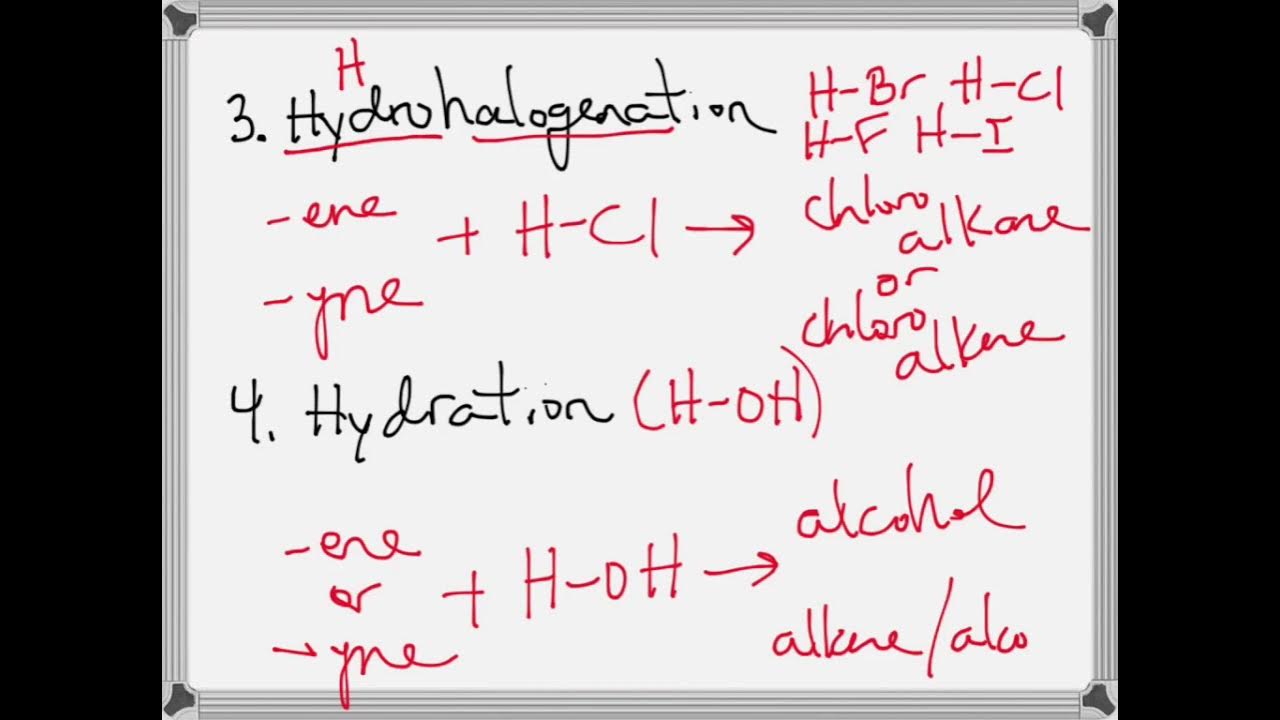 H
3. Hydrohalogenation
H-Br H-Cl
H-F H-I
-ene
-yne
+ H-Cl →
chloro
alkane
or
chloro
alkene
4. Hydration (H-OH)
-ene
or
-yne
+ H-OH →
alcohol
alkene/alco